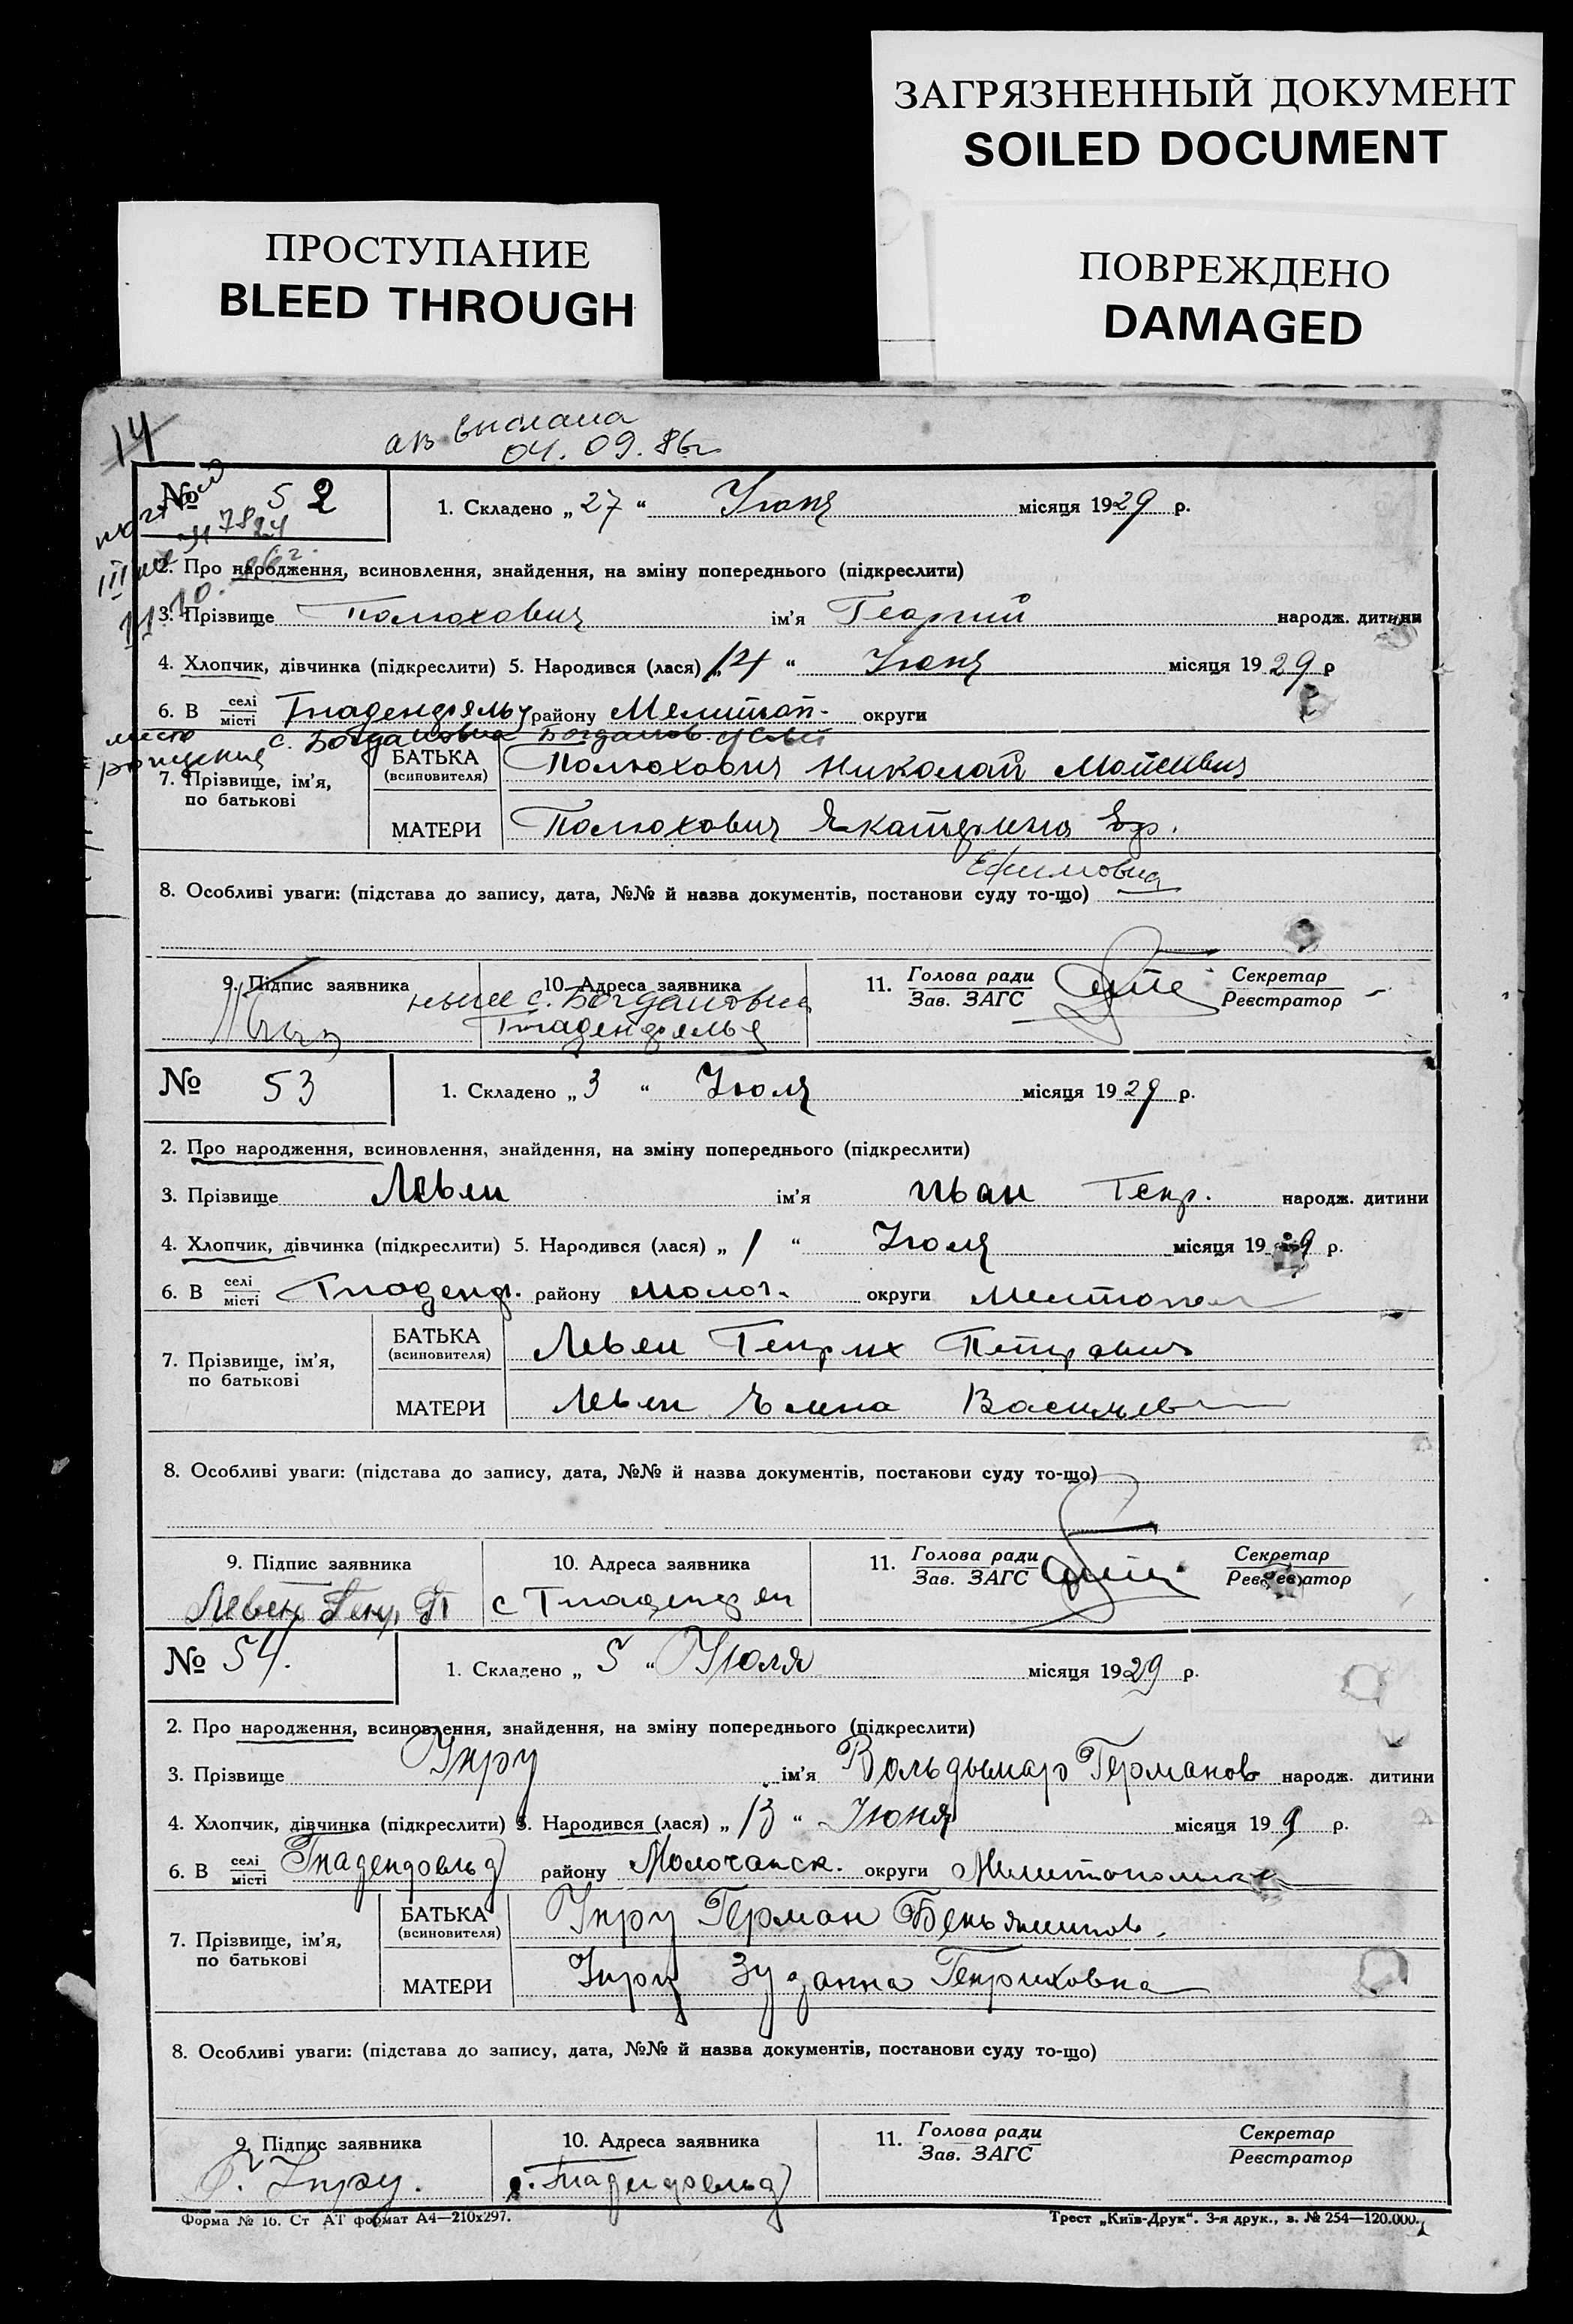 ЗАГРЯЗНЕННЫЙ ДОКУМЕНТ
SOILED DOCUMENT
ПРОСТУПАНИЕ
BLEED THROUGH
ПОВРЕЖДЕНО
DAMAGED
14
ав выслана
04. 09. 86г
№ 52
1. Складено „27“ Июня місяця 1929 р.
2. Про народження, всиновлення, знайдення, на зміну попереднього (підкреслити)
3. Прізвище Полюхович ім'я Георгий народж. дитини
4. Хлопчик, дівчинка (підкреслити) 5. Народився (лася) „14“ Июня місяця 1929 р
6. В селі/місті району Мелитоп- округи
место рождения с. Богдановка
7. Прізвище, ім'я, по батькові
БАТЬКА (всиновителя) Полюхович Николай
МАТЕРИ Полюхович Екатерина Еф.
Ефимовна
8. Особливі уваги: (підстава до запису, дата, №№ й назва документів, постанови суду то-що)
9. Підпис заявника
10. Адреса заявника
ныне с. Богдановка
11. Голова ради/Зав. ЗАГС
Секретар/Реєстратор
№ 53
1. Складено „3“ Июля місяця 1929 р.
2. Про народження, всиновлення, знайдення, на зміну попереднього (підкреслити)
3. Прізвище Левен ім'я Иван Генр. народж. дитини
4. Хлопчик, дівчинка (підкреслити) 5. Народився (лася) „1“ Июля місяця 1929 р.
6. В селі/місті Гнаденф. району Молоч. округи Мелитопол
7. Прізвище, ім'я, по батькові
БАТЬКА (всиновителя) Левен Генрих Петрович
МАТЕРИ Левен Елена Васильев
8. Особливі уваги: (підстава до запису, дата, №№ й назва документів, постанови суду то-що)
9. Підпис заявника
Левен Генр. П
10. Адреса заявника
с Гнаденфел
11. Голова ради/Зав. ЗАГС
Секретар/Реєстратор
№ 54.
1. Складено „5“ Июля місяця 1929 р.
2. Про народження, всиновлення, знайдення, на зміну попереднього (підкреслити)
3. Прізвище Унру ім'я Вольдымар Германов народж. дитини
4. Хлопчик, дівчинка (підкреслити) 5. Народився (лася) „13“ Июня місяця 199 р.
6. В селі/місті Гнаденфельд району Молочанск. округи
7. Прізвище, ім'я, по батькові
БАТЬКА (всиновителя) Унру Герман Беньяминов.
МАТЕРИ Унру Зузанна Генриховна
8. Особливі уваги: (підстава до запису, дата, №№ й назва документів, постанови суду то-що)
9. Підпис заявника
Унру.
10. Адреса заявника
с. Гнаденфельд
11. Голова ради/Зав. ЗАГС
Секретар/Реєстратор
Форма № 16. Ст АТ формат А4—210х297.
Трест „Київ-Друк“. 3-я друк., з. № 254—120.000.